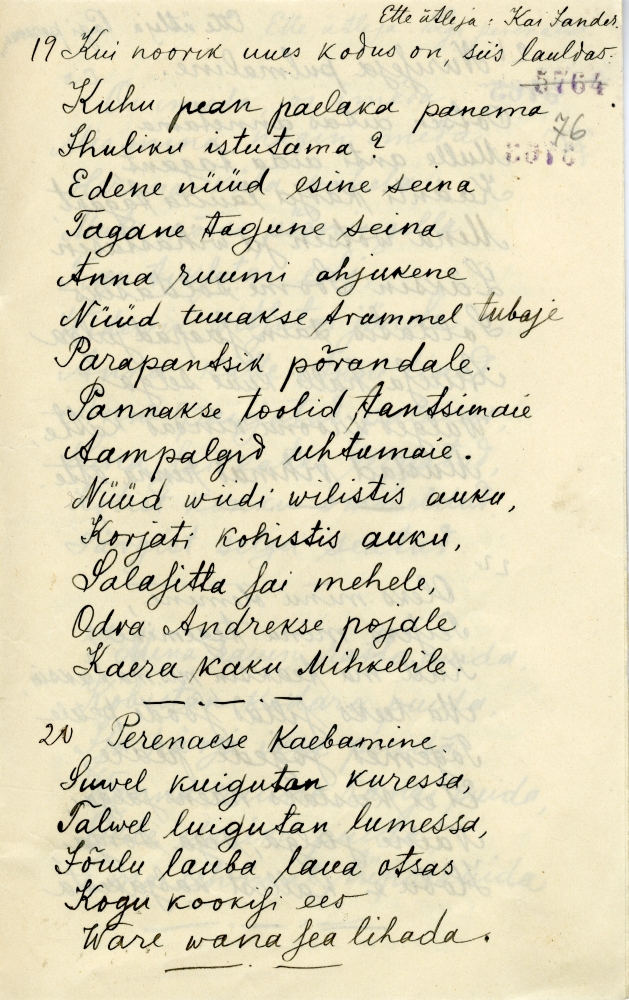 Ette ütleja: Kai Sander.
19 Kui noorik uues kodus on, siis lauldas.
5764
Kuhu pean paelaka panema
76
Ihuliku istutama?
Edene nüüd esine seina
Tagane tagune seina
Anna ruumi ahjukene
Nüüd tuuakse trammel tubaje
Parapantsik põrandale.
Pannakse toolid tantsimaie
Aampalgid uhtumaie.
Nüüd wiidi wilistis auku,
Korjati kohistis auku,
Salasitta sai mehele,
Odra Andrekse pojale
Kaera kaku Mihkelile.
20 Perenaese Kaebamine.
Suwel kuigutan kuressa,
Talwel luigutan lumessa,
Jõulu lauba laua otsas
Kogu kookisi ees
Ware wana sea lihada.